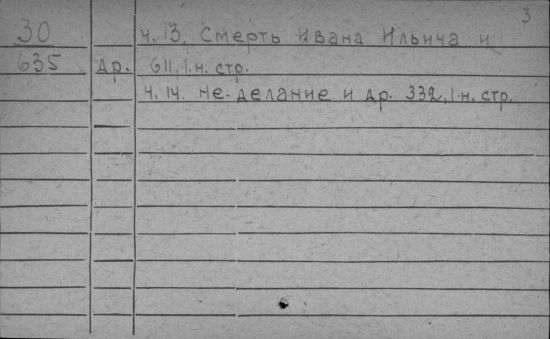 3
30 ч. 13. Смерть Ивана Ильича и
635 др. 611, 1.н. стр.
ч. 14. Не-делание и др. 332, 1.н. стр.